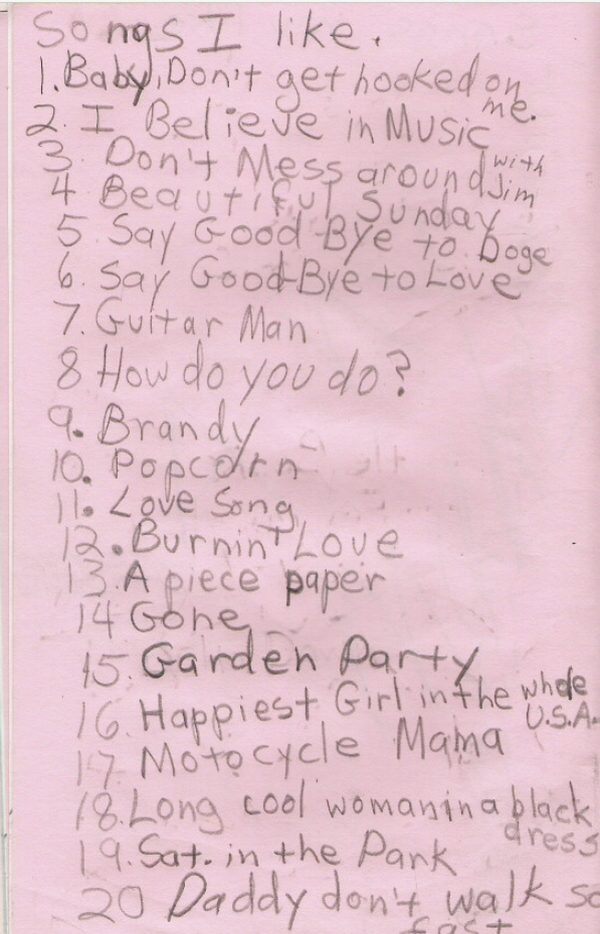 Songs I like.
1. Baby, Don't get hooked on
me.
2. I Believe in Music
3. Don't Mess around with
Jim
4 Beautiful Sunday
5. Say Good Bye to Doge
6. Say Good-Bye to Love
7. Guitar Man
8 How do you do?
9. Brandy
10. Popcorn
11. Love Song
12. Burnin' Love
13. A piece paper
14 Gone
15. Garden Party
16. Happiest Girl in the whole
U.S.A.
17 Motocycle Mama
18. Long cool woman in a black
dress
19. Sat. in the Park
20 Daddy don't walk so
fast